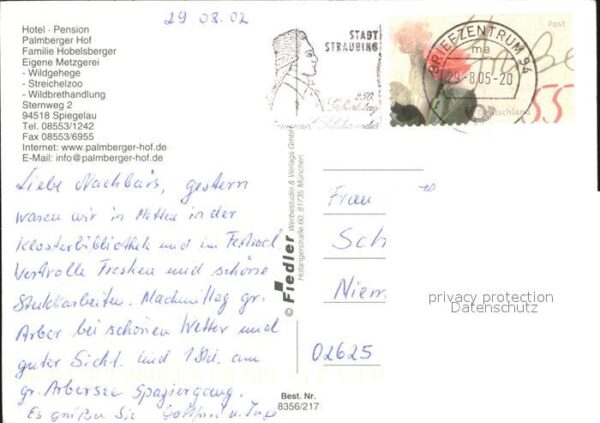 29 08. 02
Hotel - Pension
Palmberger Hof
Familie Hobelsberger
Eigene Metzgerei
- Wildgehege
- Streichelzoo
- Wildbrethandlung
Sternweg 2
94518 Spiegelau
Tel. 08553/1242
Fax 08553/6955
Internet: www.palmberger-hof.de
E-Mail: info@palmberger-hof.de
STADT
STRAUBING
BRIEFZENTRUM 94
ma
29-8.05-20
Post
Grüße
55
Deutschland
Liebe Nachbars, gestern
waren wir in Metten in der
Klosterbibliothek und im Festsaal
Wertvolle Fresken und schöne
Stukkarbeiten. Nachmittag gr.
Arber bei schönen Wetter und
guter Sicht. Und 1 Std. am
gr. Arbersee Spaziergang.
Es grüßen Sie Gottfried u. Inge
© Fiedler Werbestudio & Verlags GmbH
Hofangerstraße 60, 81735 München
Frau
Sch
Niem
02625
privacy protection
Datenschutz
Best. Nr.
8356/217